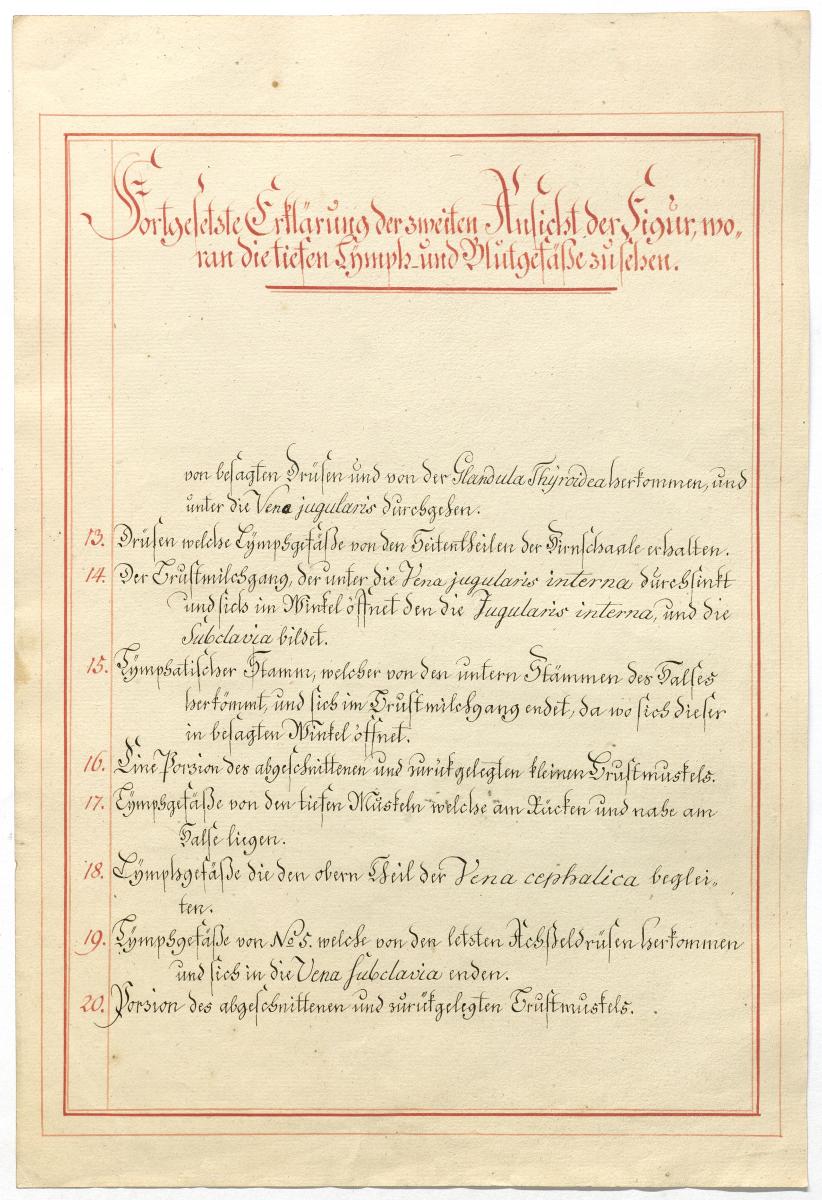 Fortgesetzte Erklärung der zweiten Ansicht der Figur, wo„
ran die tiefen Lÿmph- und Blutgefäße zu sehen.
von besagten Drüsen und von der Glandula Thÿroidea herkommen, und
unter die Vena jugularis durchgehen.
13. Drüsen welche Lÿmphgefäße von den Seitentheilen der Hirnschaale erhalten.
14. Der Brustmilchgang, der unter die Vena jugularis interna durchsinkt
und sich im Winkel öffnet den die Jugularis interna, und die
Subclavia bildet.
15. Lÿmphatischer Stamm, welcher von den untern Stämmen des Halses
herkömmt, und sich im Brustmilchgang endet, da wo sich dieser
in besagten Winkel öffnet.
16. Eine Porzion des abgeschnittenen und zurükgelegten kleinen Brustmuskels.
17. Lÿmphgefäße von den tiefen Muskeln welche am Räcken und nahe am
Halse liegen.
18. Lÿmphgefäße die den obern Theil der Vena cephalica beglei„
ten.
19. Lÿmphgefäße von No 5. welche von den letzten Achßeldrüsen herkommen
und sich in die Vena Subclavia enden.
20. Porzion des abgeschnittenen und zurükgelegten Brustmuskels.